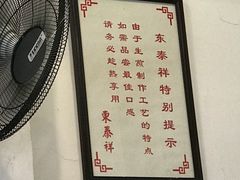 东泰祥特别提示
由于生煎制作工艺的特点
如需品尝最佳口感
请务必趁热享用
東泰祥